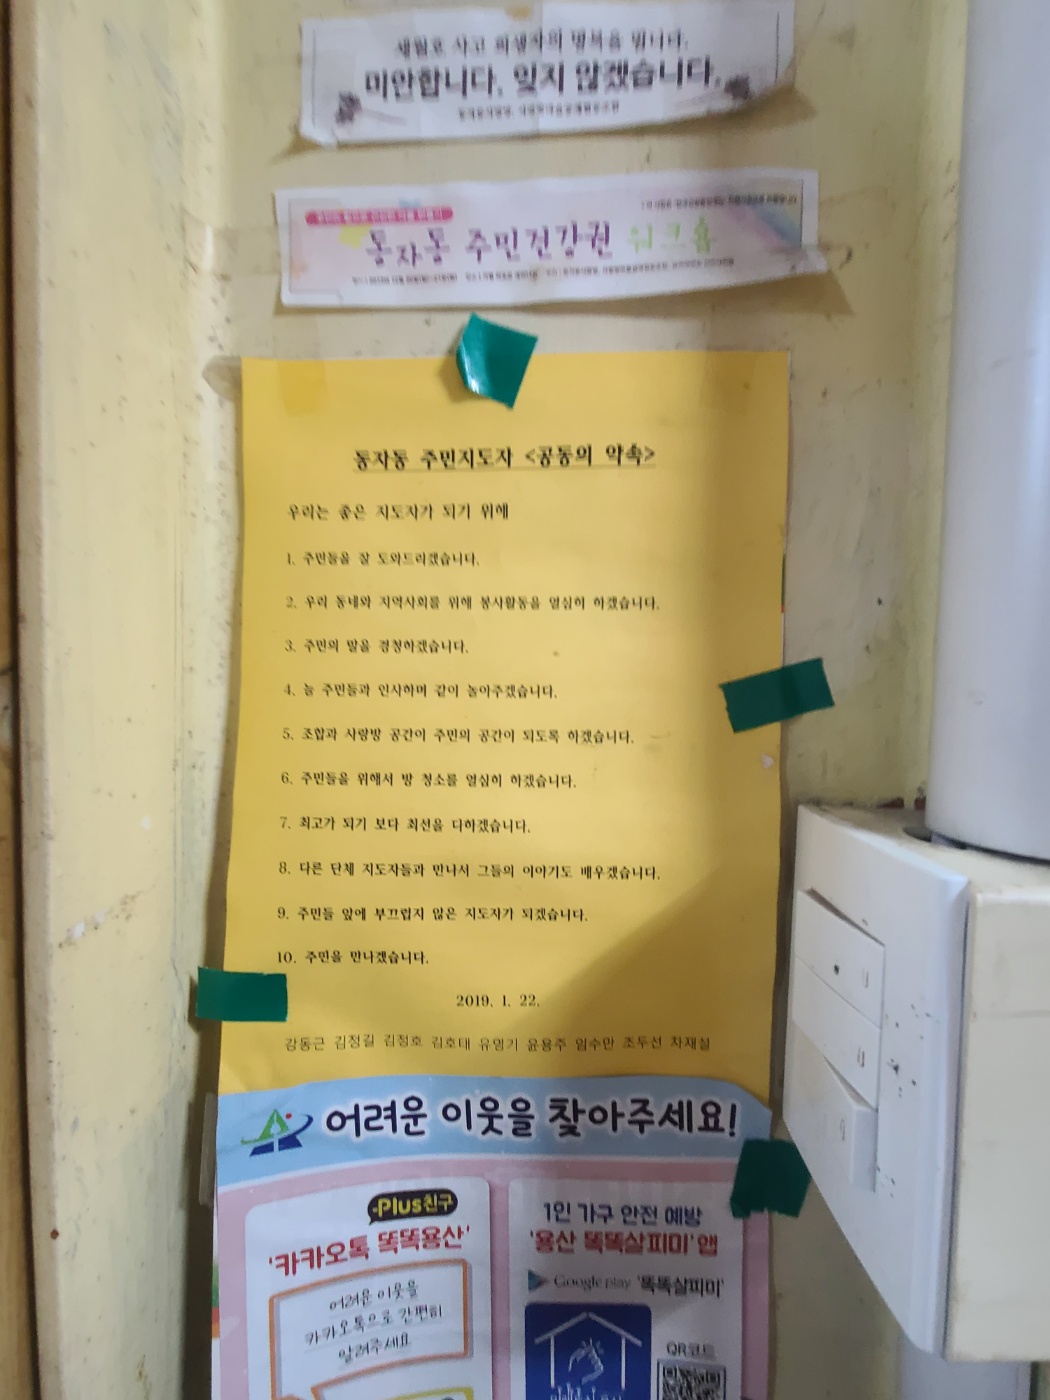 세월호 사고 희생자의 명복을 빕니다.
미안합니다. 잊지 않겠습니다.
동자동 주민건강권 워크숍
동자동 주민지도자 <공동의 약속>
우리는 좋은 지도자가 되기 위해
1. 주민들을 잘 도와드리겠습니다.
2. 우리 동네와 지역사회를 위해 봉사활동을 열심히 하겠습니다.
3. 주민의 말을 경청하겠습니다.
4. 늘 주민들과 인사하며 같이 놀아주겠습니다.
5. 조합과 사랑방 공간이 주민의 공간이 되도록 하겠습니다.
6. 주민들을 위해서 방 청소를 열심히 하겠습니다.
7. 최고가 되기 보다 최선을 다하겠습니다.
8. 다른 단체 지도자들과 만나서 그들의 이야기도 배우겠습니다.
9. 주민들 앞에 부끄럽지 않은 지도자가 되겠습니다.
10. 주민을 만나겠습니다.
2019. 1. 22.
강동근 김정길 김정호 김호태 유영기 윤용주 임수만 조두선 차재설
어려운 이웃을 찾아주세요!
Plus친구
'카카오톡 똑똑용산'
어려운 이웃을
카카오톡으로 간편히
알려주세요
1인 가구 안전 예방
'용산 똑똑살피미' 앱
Google play '똑똑살피미'
QR코드